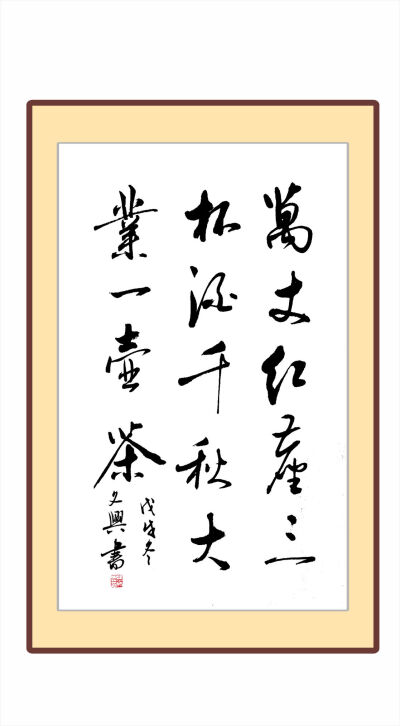 萬丈紅塵三
杯酒千秋大
業一壺茶
戊戌冬
文興書